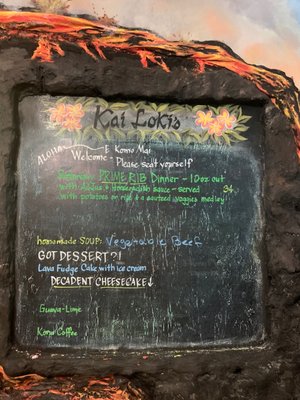 Kai Lokis
E Komo Mai
ALOHA
Welcome - Please seat yourself
PRIME RIB Dinner - 10oz cut
with AuJus & Horseradish sauce - served 34
with potatoes or rice & a sauteed veggies medley!
homemade SOUP: Vegetable Beef
GOT DESSERT?!
Lava Fudge Cake with ice cream
DECADENT CHEESECAKE↓
Guava-Lime
Kona Coffee